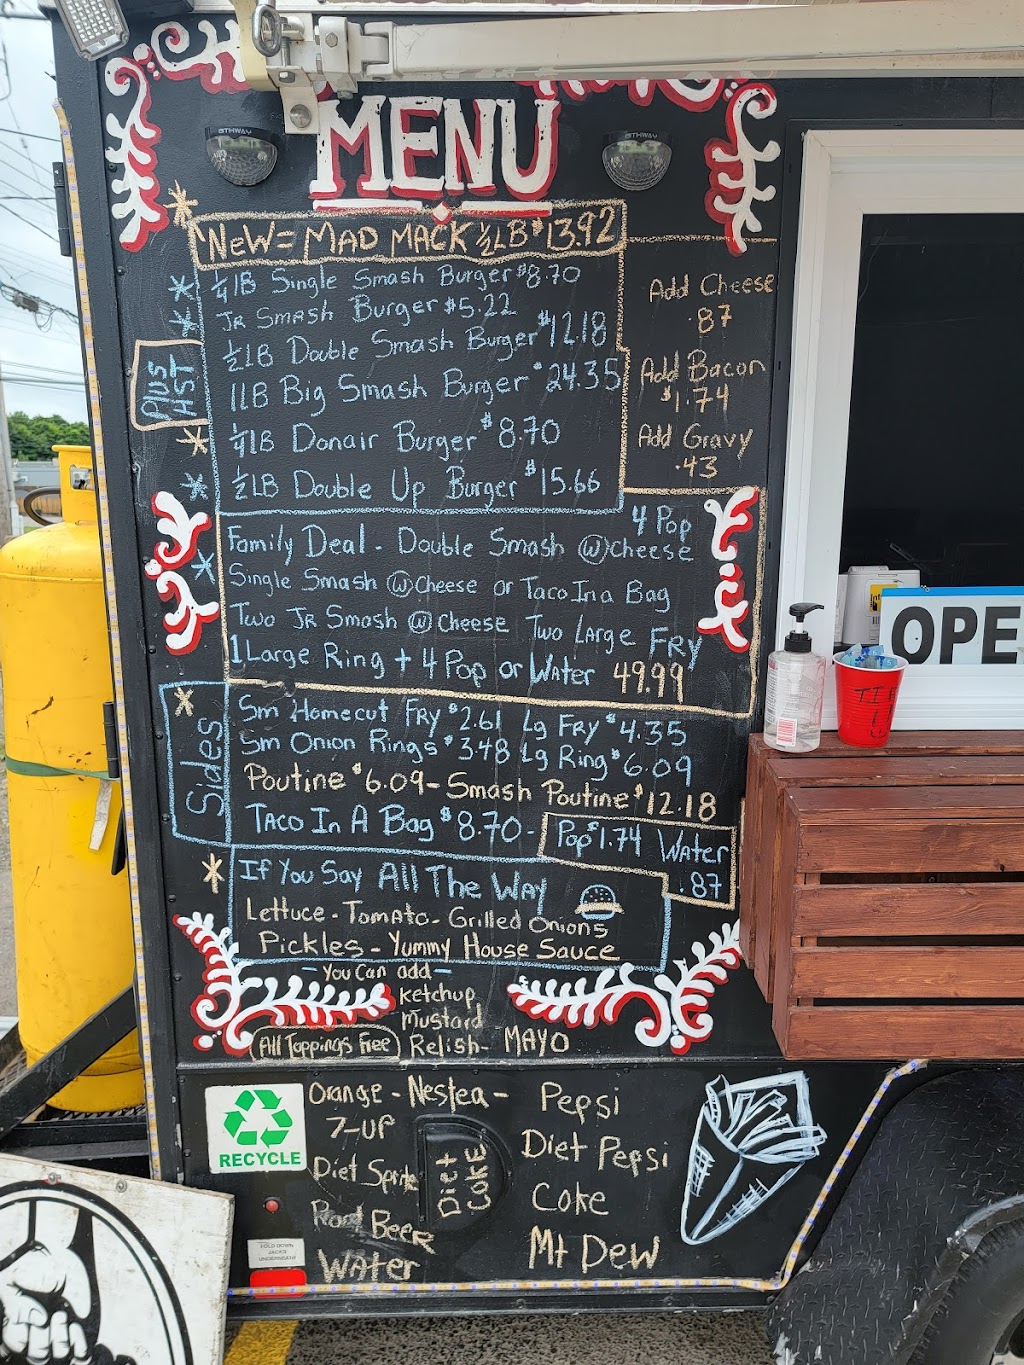 MENU
NeW = MAD MACK ½ LB $13.92
¼ lB Single Smash Burger $8.70
JR Smash Burger $5.22
½ LB Double Smash Burger $12.18
1LB Big Smash Burger $24.35
¼ lB Donair Burger $8.70
½ LB Double Up Burger $15.66
Plus
HST
Add Cheese
.87
Add Bacon
$1.74
Add Gravy
.43
4 Pop
Family Deal - Double Smash @ Cheese
Single Smash @ Cheese or Taco In a Bag
Two JR Smash @ Cheese Two Large FRY
1 Large Ring + 4 Pop or Water 49.99
Sides
Sm Homecut FRY $2.61 Lg FRY $4.35
Sm Onion Rings $3.48 Lg Ring $6.09
Poutine $6.09 - Smash Poutine $12.18
TACO In A Bag $8.70 -
Pop $1.74 Water
.87
If You Say All The Way
Lettuce - Tomato - Grilled Onions
Pickles - Yummy House Sauce
- You Can add -
ketchup
Mustard
All Toppings Free Relish - MAYO
RECYCLE
Orange - Nestea -
7-UP
Diet Sprite
Diet
Coke
Root Beer
Water
Pepsi
Diet Pepsi
Coke
Mt Dew
OPE